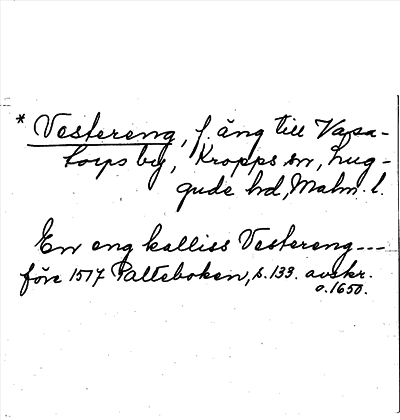 * Vestereng, f. äng till Vasa-
torps by, Kropps sn, Lug-
gude hd, Malm. l.
En eng kalliss Vestereng---
före 1517 Palteboken, s. 133. avskr.
o. 1650.